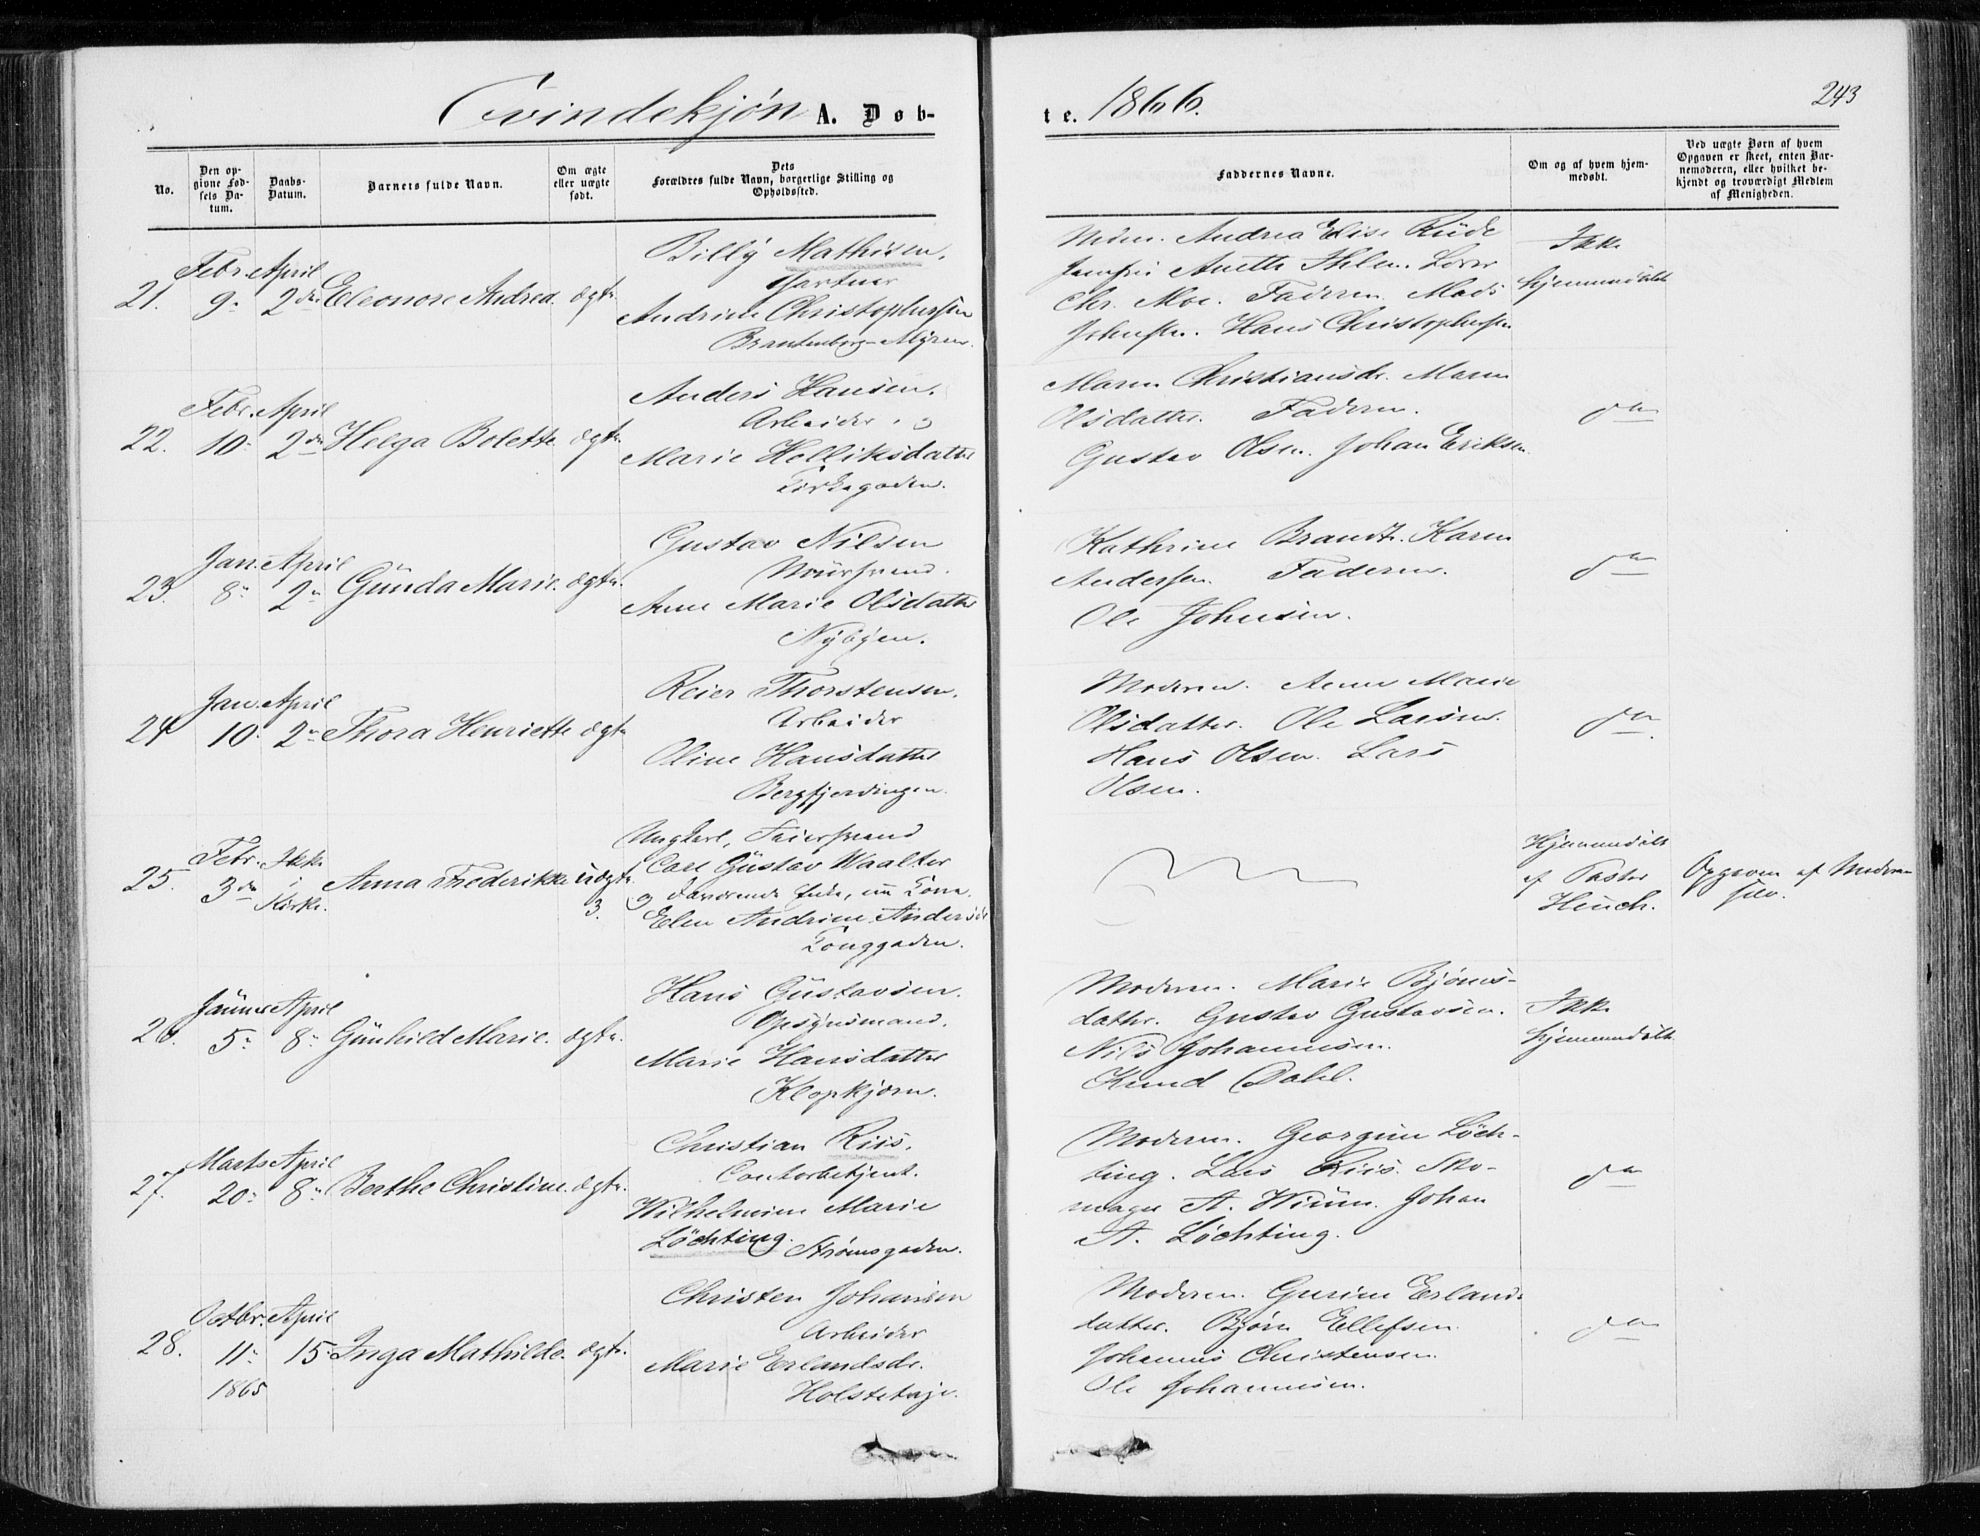 Qvindekjøn A. Døb-
te. 1866.
243
No.
Den op-
givne Fød-
sels Da-
tum.
Daabs-
Datum.
Barnets fulde Navn.
Om ægte
eller uægte
født.
Dets
Forældres fulde Navn, borgerlige Stilling og
Opholdssted.
Faddernes Navne.
Om og af hvem hjem-
medøbt.
Ved uægte Børn af hvem
Opgaven er skeet, enten Bar-
nemoderen, eller hvilket be-
kjendt og troværdigt Medlem
af Menigheden.
21.
Febr.
9
April
2den
Eleonore Andrea
ægte
Billy Mathisen.
Gartner
Andrine Christophersen
Brantenborg-Myren.
Andrea Elise Rüde
Jomfru Anette Ihlen. Lærer
Chr. Moe. Faderen. Mads
Johnsen. Hans Christophersen
Ikke
hjemmedøbt
22.
Febr.
10
April
2den
Helga Bolette
ægte
Anders Hansen.
Arbeider. og
Marie Holliksdatter
Kirkegaden.
Maren Christiansdr. Maren
Olsdatter. Faderen.
Gustav Olsen. Johan Eriksen.
do
23.
Jan.
8
April
2
Günda Marie.
ægte.
Gustav Nilsen
Muursvend.
Anne Marie Olsdatter
Nybyen.
Kathrine Brandt. Karen
Andersen. Faderen.
Ole Johnsen.
do
24
Jan.
10
April
2
Thora Henriette
ægte
Reier Thorstensen.
Arbeider
Oline Hansdatter
Bergfjerdingen.
Moderen. Anne Marie
Olsdatter. Ole Larsen.
Hans Olsen. Lars
Olsen.
do
25.
Febr.
3die
Ikke
i
Kirke.
Anna Frederikke
uægte
3.
Ungkarl,
Carl Güstav Waalter
Elen Andrine Andersdr
Tonggaden.
Hjemmedøbt
af Pastor
Heuch.
Opgaven af Moderen
selv.
26.
Januar
5
April
8
Günhild Marie.
ægte.
Hans Güstavsen.
Opsynsmand.
Marie Hansdatter
Klopkjærn.
Moderen. Marie Bjørns-
datter. Gustav Gustavsen.
Nils Johannesen.
Knud Dahl.
Ikke
hjemmedøbt
27.
Marts
20
April
8
Berthe Christine.
ægte.
Christian Riis.
Contorbetjent.
Wilhelmine Marie
Løchting. Strømsgaden.
Moderen. Georgine Løch-
ting. Lars Riis. Sko-
mager A. Johan
A. Løchting.
do
28.
Octbr.
11
1865
April
15
Inga Mathilde.
ægte.
Christen Johansen
Arbeider
Marie Erlandsdr.
Holstehaje.
Moderen. Gurine Erlands-
datter. Bjørn Ellefsen.
Johannes Christensen.
Ole Johannesen.
do